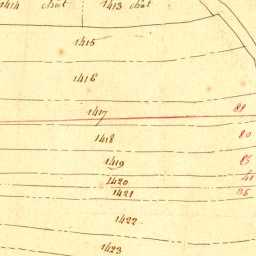 1414 chât 1413 chât
1415
1416
1417
1418 80
1419
1420
1421
1422
1423